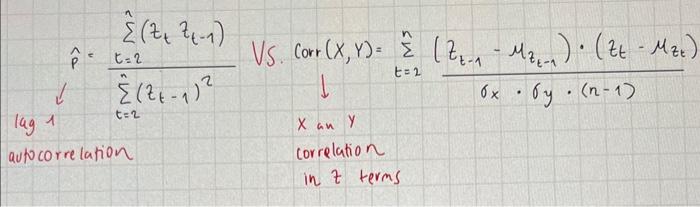 p̂ = Σ_{t=2}^{n} (z_t z_{t-1}) / Σ_{t=2}^{n} (z_{t-1})² VS. Corr(X,Y)= Σ_{t=2}^{n} (z_{t-1} - μ_{z_{t-1}}) · (z_t - μ_{z_t}) / σx · σy · (n-1)
↓ ↓
lag 1
autocorrelation
X an Y
correlation
in z terms